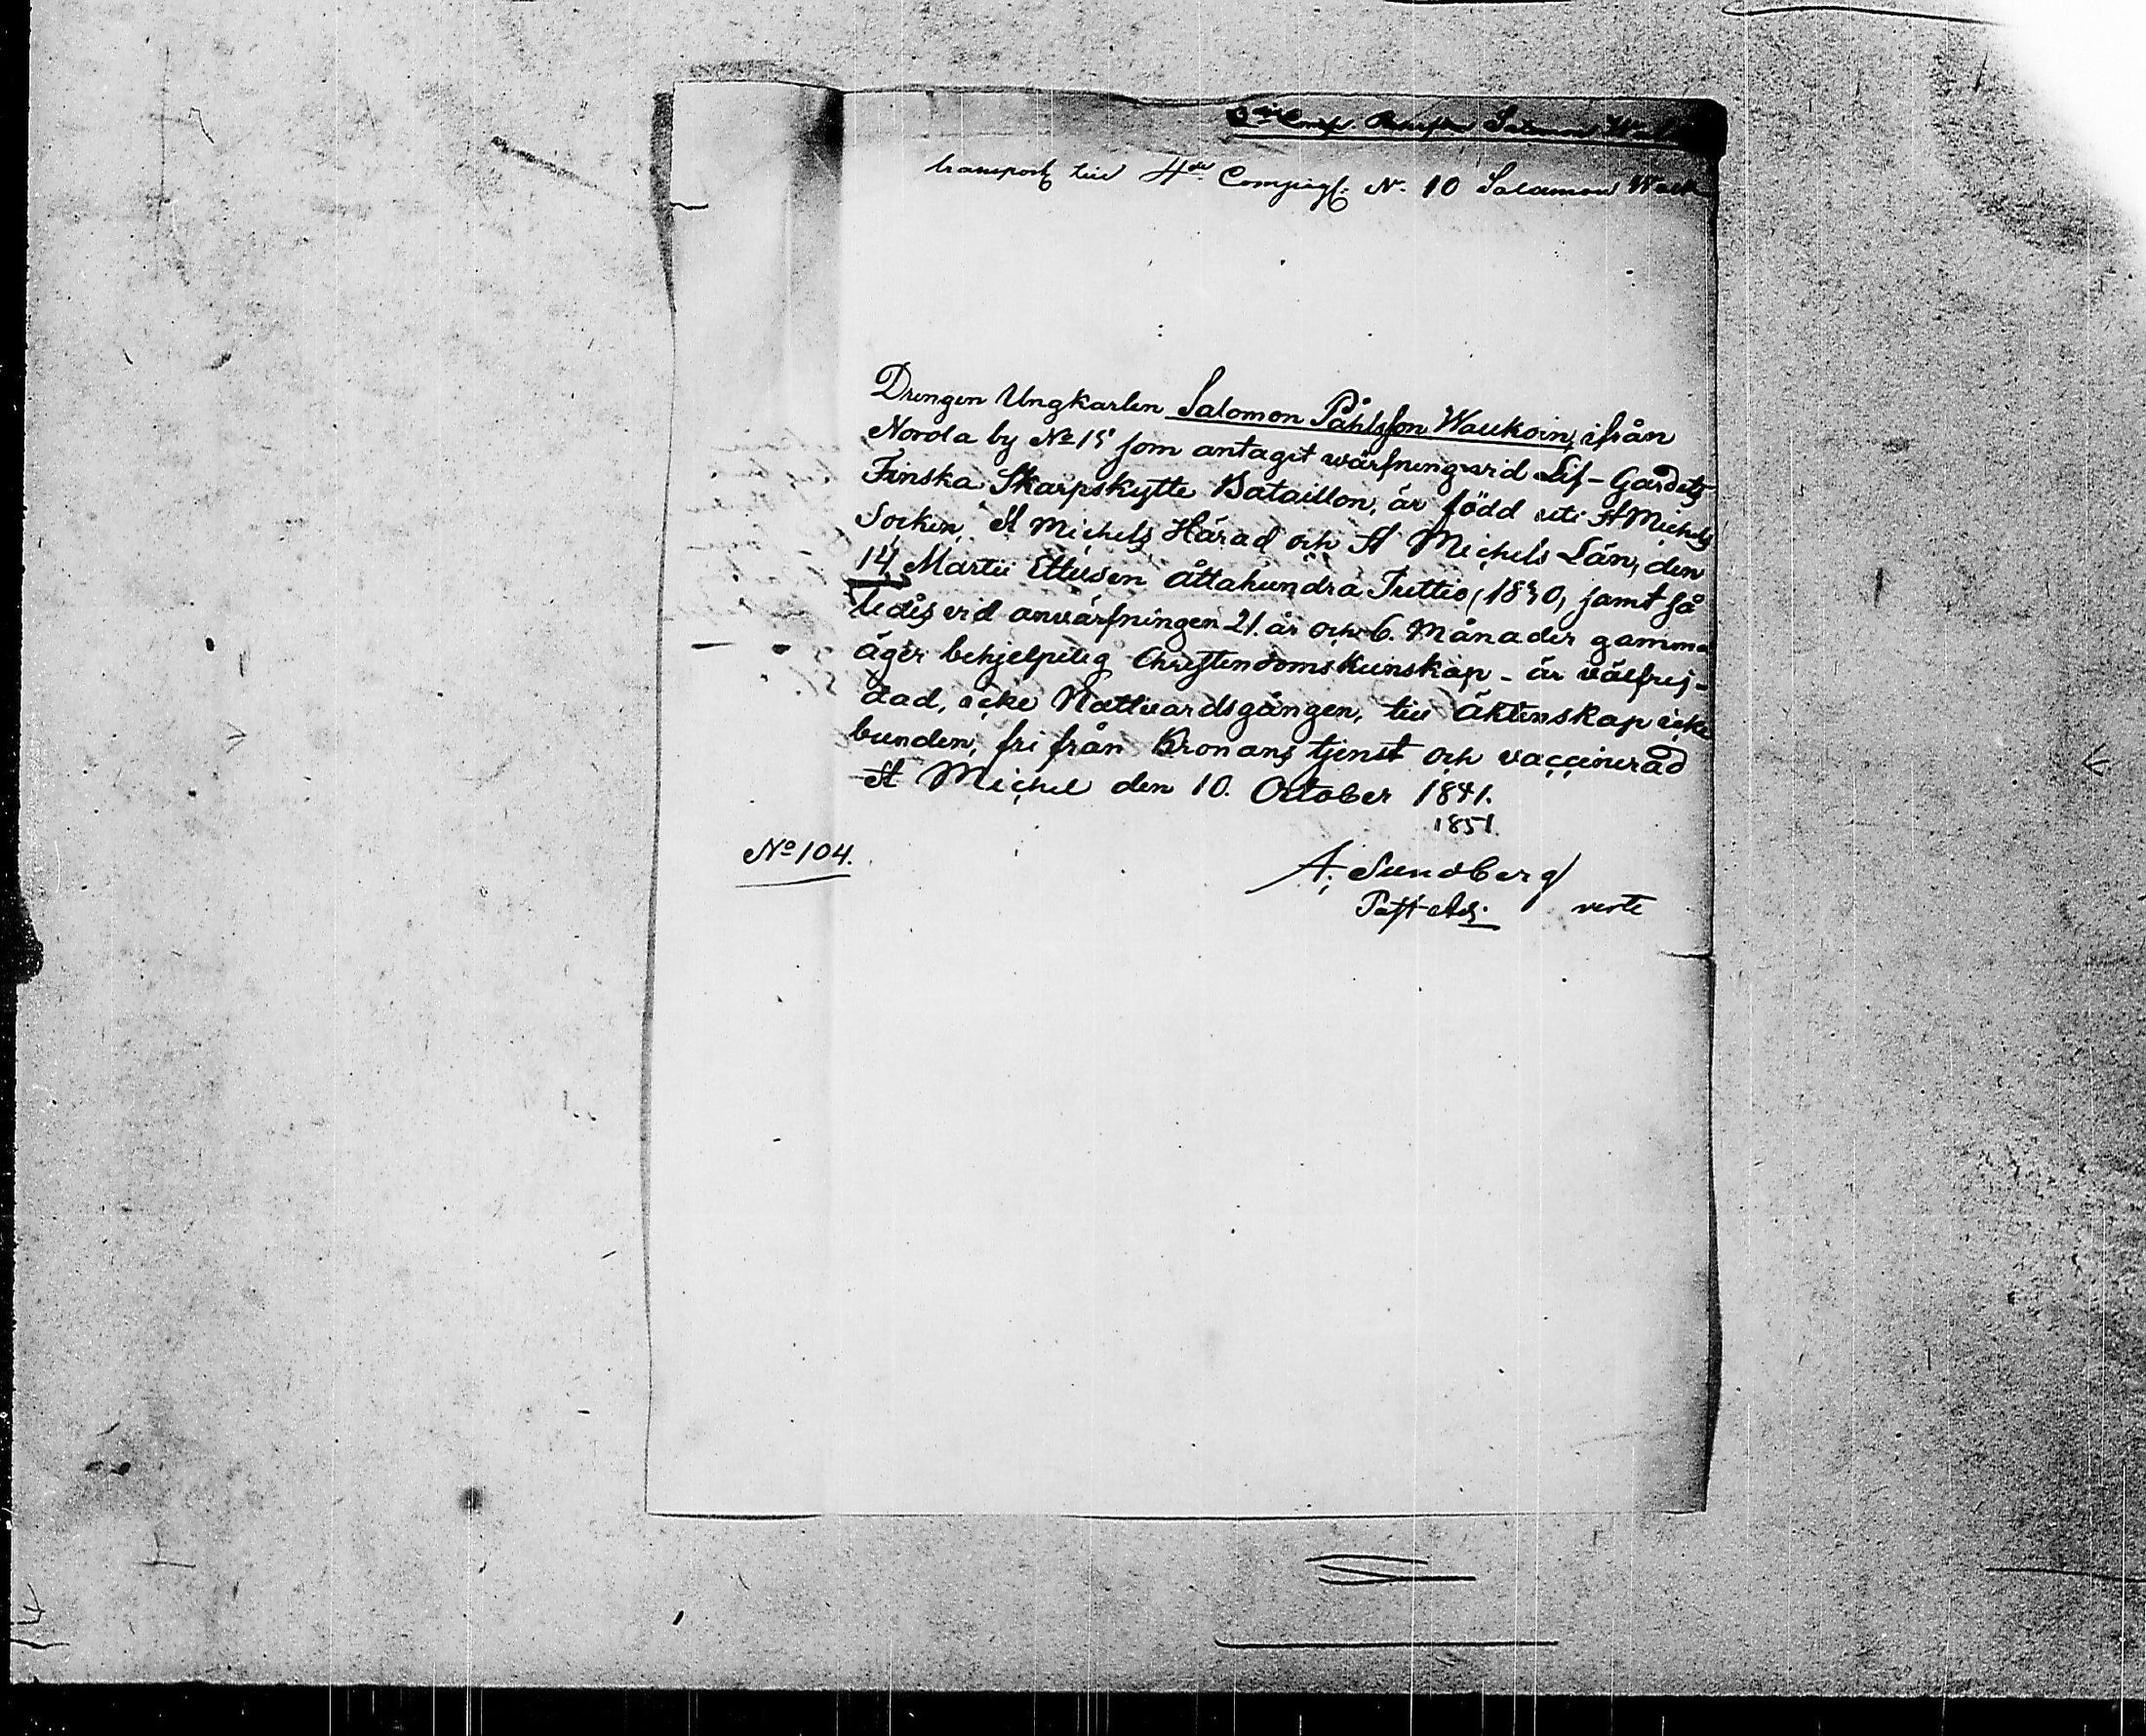 Salomon
transport till 4de Compagt. No. 10 Salamon Walk
Drengen Ungkarlen Salomon Påhlsson Waukoin, ifrån
Norola by No 15 som antagit wärfning vid Lif-Gardets
Finska Skarpskytte Bataillon, är född uti St Michels
Socken, St Michels Härad och St Michels Län, den
14 Martii Ettusen åttahundra Trettio, 1830, samt så
ledes vid anvärfningen 21. år och 6. Månader gammal
äger behjelpelig Christendomskunskap - är välfrej-
dad, icke Nattvardsgången, till äktenskap icke
bunden, fri från Kronans tjenst och vaccinerad
St Michel den 10. October 1841.
1851.
No 104.
A. Sundberg
Past. Adj. verte